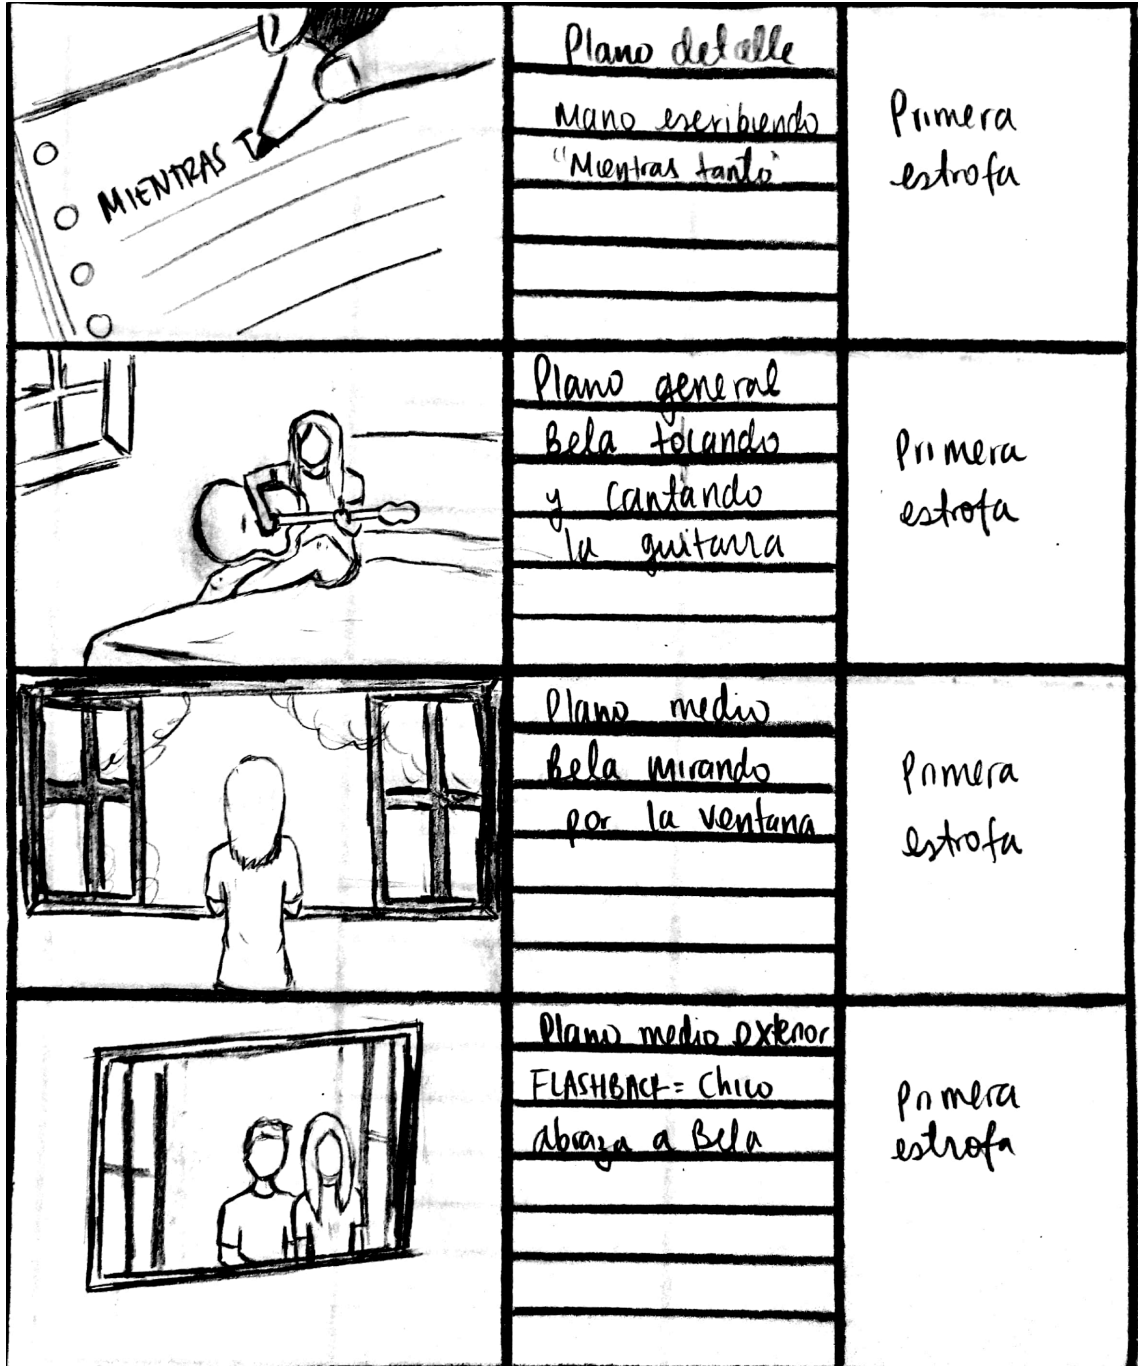 MIENTRAS T
Plano detalle
Mano escribiendo
"Mientras tanto"
Primera
estrofa
Plano general
Bela tocando
y cantando
la guitarra
Primera
estrofa
Plano medio
Bela mirando
por la ventana
Primera
estrofa
Plano medio exterior
FLASHBACK = Chico
abraza a Bela
Primera
estrofa